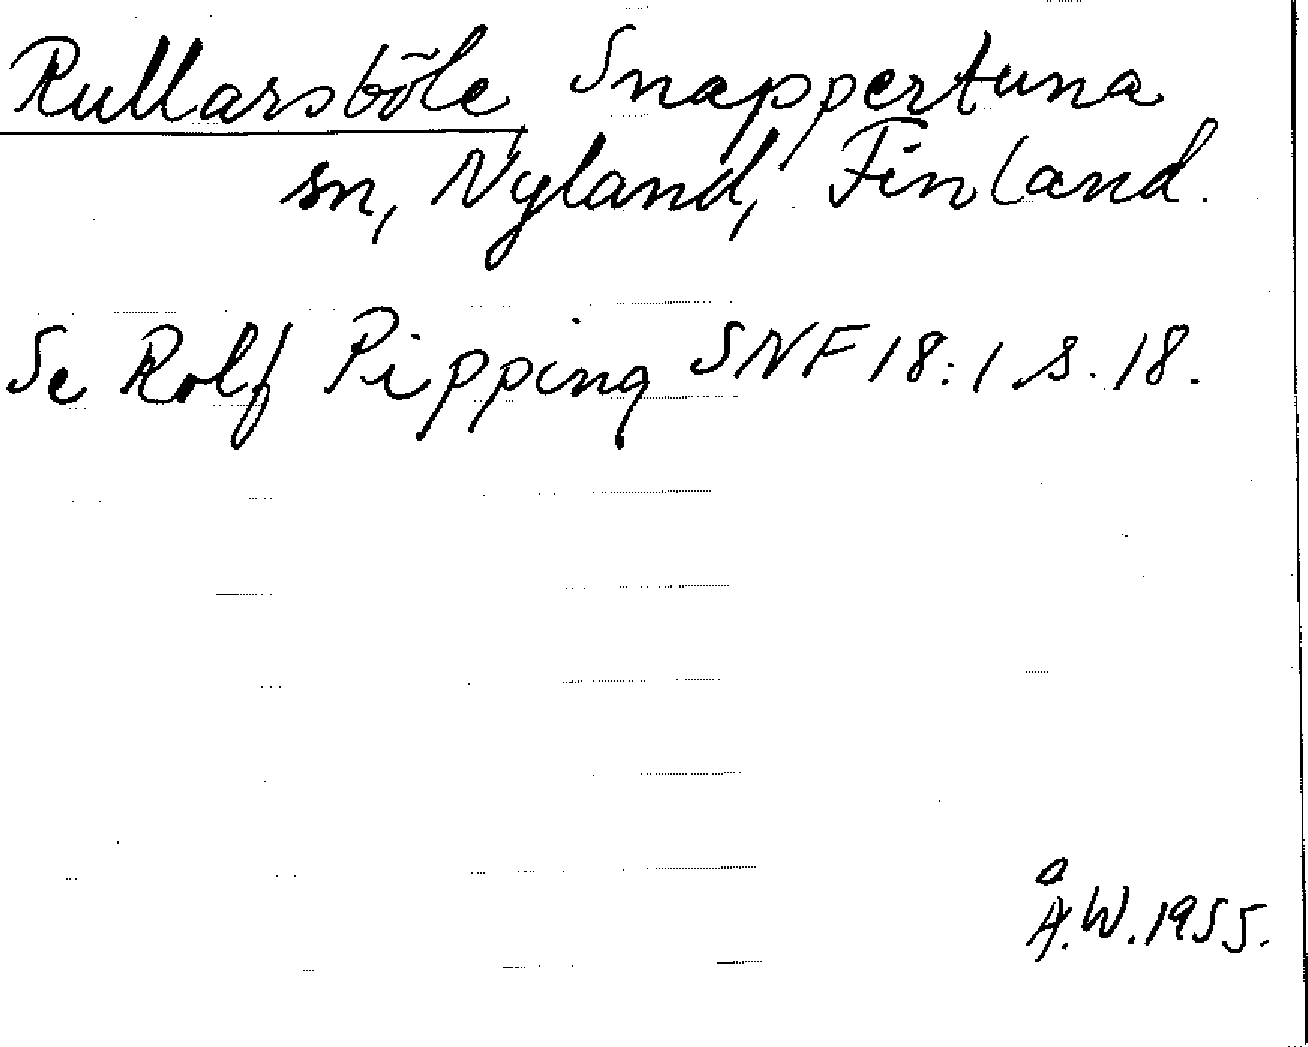 Rullarsböle, Snappertuna
sn, Nyland, Finland.
Se Rolf Pipping SNF 18:1 s. 18.
Å.W. 1955.